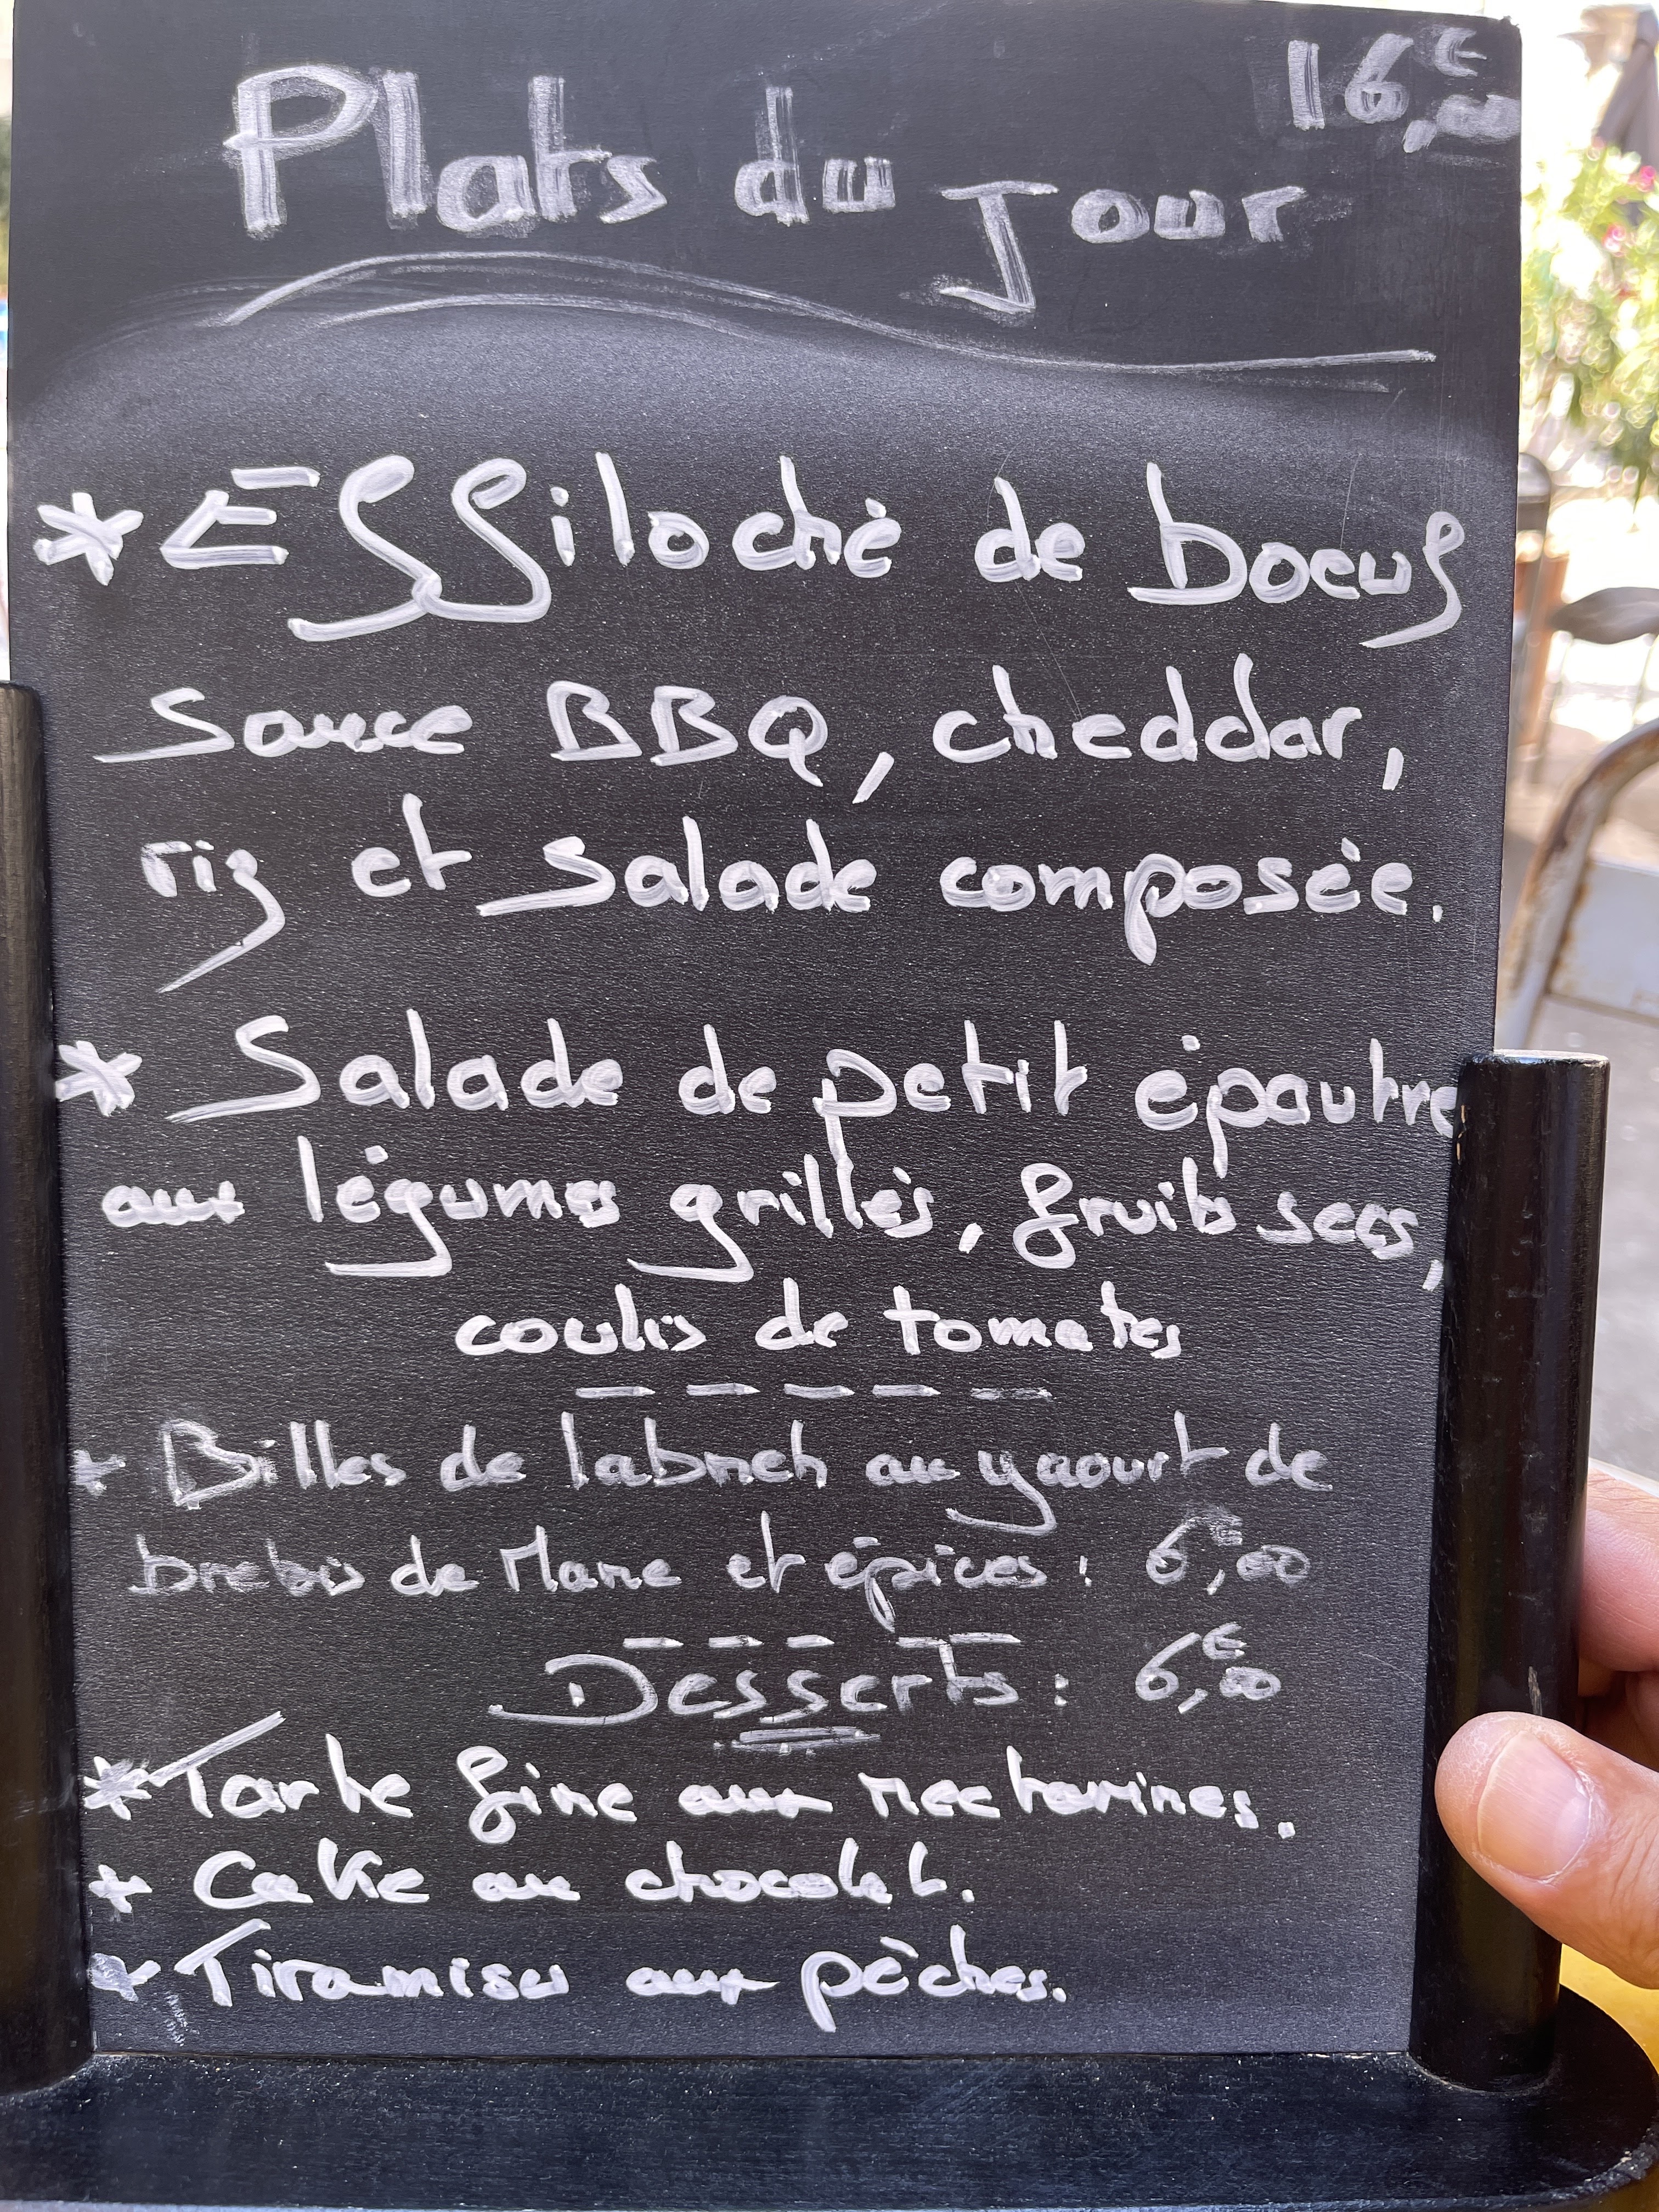 16€,00
Plats du Jour
* Effiloché de boeuf
sauce BBQ, cheddar,
riz et salade composée.
* Salade de petit épautre
aux légumes grillés, fruits secs,
coulis de tomates
* Billes de labneh au yaourt de
brebis de Mane et épices : 6€,00
Desserts : 6€,00
* Tarte fine aux nectarines.
* Cake au chocolat.
* Tiramisu aux pêches.